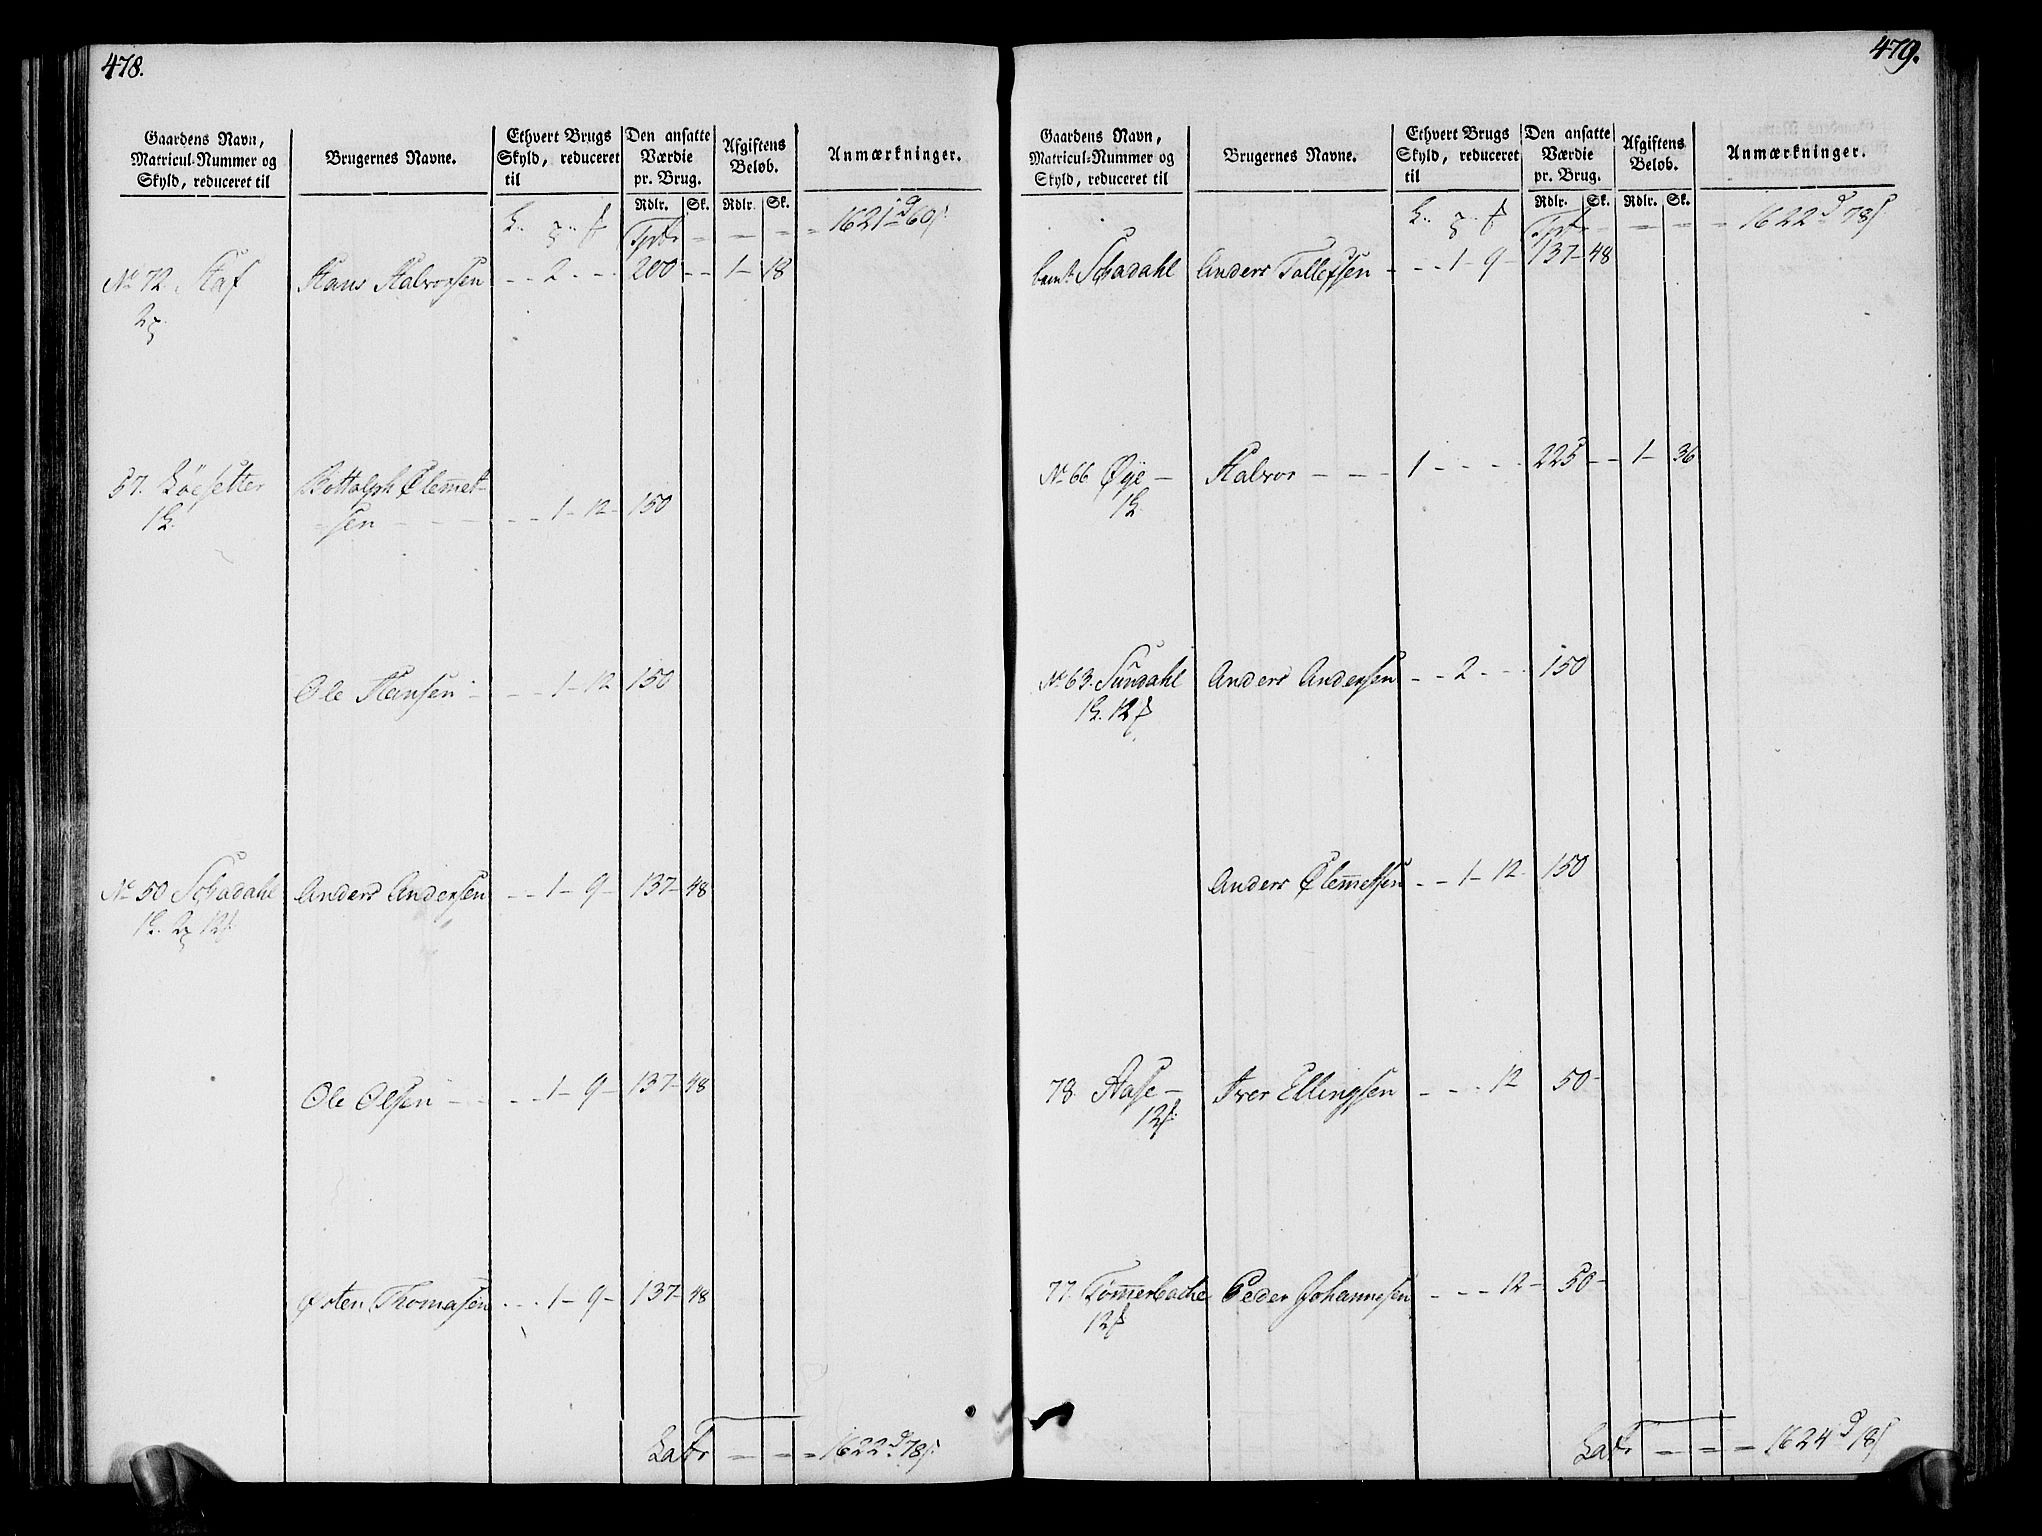 478.
Gaardens Navn, Matricul-Nummer og Skyld, reduceret til
Brugernes Navne.
Ethvert Brugs Skyld, reduceret til
Den ansatte Værdie pr. Brug.
Afgiftens Beløb.
Anmærkninger.
Rdlr. Sk. Rdlr. Sk.
Tprt - - - 1621 d 60 s.
No 72 Haf Hans Halvorsen - - 2 - - 200 - - 1 - 18
2
57. Löesetter Bottolph Clemet-
1 sen - - - - - 1 - 12 - 150
Ole Hansen - - - 1 - 12 150
No 50 Schadahl Anders Andersen - - 1 - 9 - 137 - 48
1 2 12
Ole Olsen - - - - 1 - 9 - 137 - 48
Østen Thomasen - - - 1 - 9 - 137 - 48
Latr - - - 1622 d 78 s.
479.
Gaardens Navn, Matricul-Nummer og Skyld, reduceret til
Brugernes Navne.
Ethvert Brugs Skyld, reduceret til
Den ansatte Værdie pr. Brug.
Afgiftens Beløb.
Anmærkninger.
Rdlr. Sk. Rdlr. Sk.
Tprt - - - - 1622 d 78 s
Schadahl Anders Tollefsen - - - 1 - 9 - 137 - 48
No 66 Øye - Halvor - - - 1 - - - 225 - - 1 - 36
1
No 63. Sundahl Anders Andersen - - 2 - - 150
1 12
Anders Clemetsen - - 1 - 12 150
78. Aase - Iver Ellingsen - - - 12 50 -
12
77. Tömmerbache Peder Johannesen - - - 12 - 50 -
12
Latr - - - 1624 d 18 s